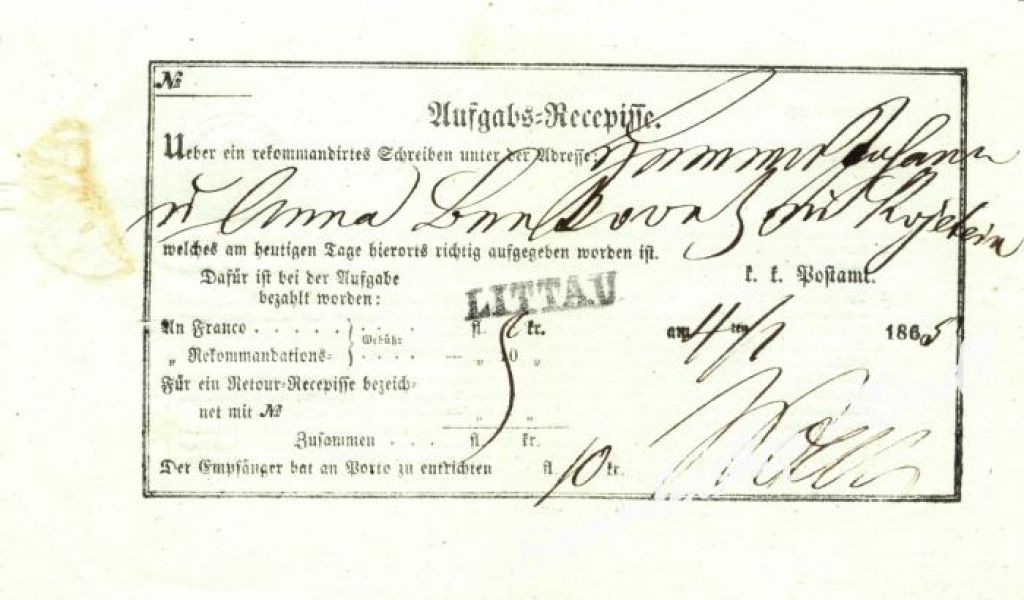 №
Aufgabs-Recepisse.
Ueber ein rekommandirtes Schreiben unter der Adresse: Johann
u Anna zu Kojetein
welches am heutigen Tage hierorts richtig aufgegeben worden ist.
Dafür ist bei der Aufgabe
bezahlt worden:
k. k. Postamt.
LITTAU
An Franco . . . . . . . . . fl. kr.
„ Rekommandations- . . . . — „ 10 „
Gebühr
am 4ten/1 1865
Für ein Retour-Recepisse bezeich-
net mit № „ „
Zusammen . . . fl. kr.
Der Empfänger hat an Porto zu entrichten fl. 10 kr.